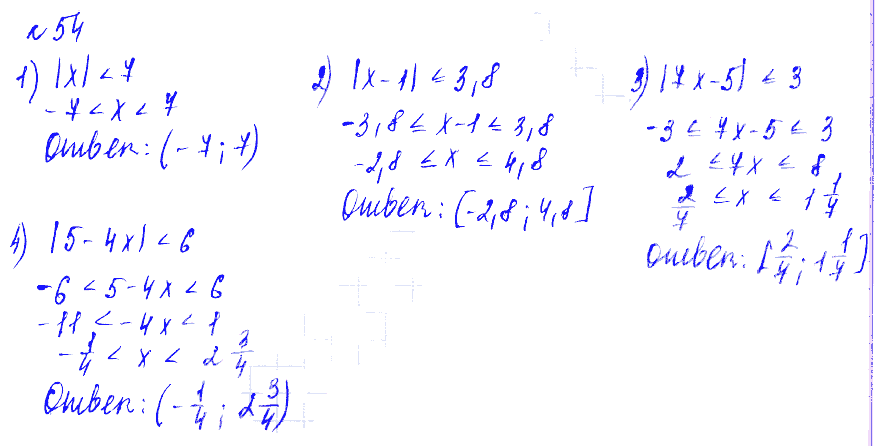 № 54
1) |x| < 7
-7 < x < 7
Ответ: (-7; 7)
2) |x-1| ≤ 3,8
-3,8 ≤ x-1 ≤ 3,8
-2,8 ≤ x ≤ 4,8
Ответ: [-2,8; 4,8]
3) |7x-5| ≤ 3
-3 ≤ 7x-5 ≤ 3
2 ≤ 7x ≤ 8
2/7 ≤ x ≤ 1 1/7
Ответ: [2/7; 1 1/7]
4) |5-4x| < 6
-6 < 5-4x < 6
-11 < -4x < 1
-1/4 < x < 2 3/4
Ответ: (-1/4; 2 3/4)